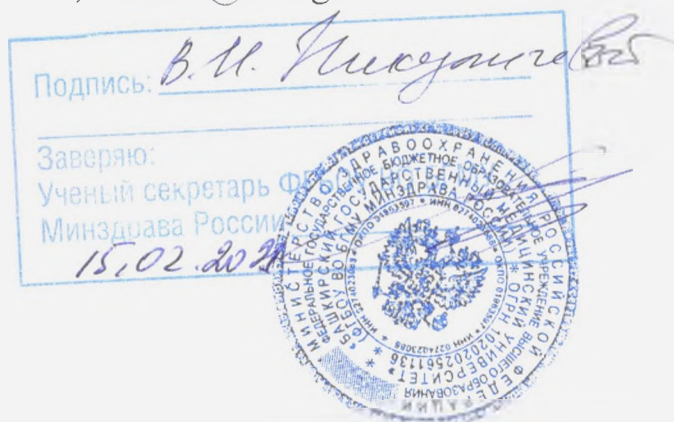 Подпись: В.И. Никуличевой
Заверяю:
Ученый секретарь ФГБОУ
Минздрава России
15.02.20
МИНИСТЕРСТВО ЗДРАВООХРАНЕНИЯ РОССИЙСКОЙ ФЕДЕРАЦИИ
ФЕДЕРАЛЬНОЕ ГОСУДАРСТВЕННОЕ БЮДЖЕТНОЕ ОБРАЗОВАТЕЛЬНОЕ УЧРЕЖДЕНИЕ ВЫСШЕГО ОБРАЗОВАНИЯ
"БАШКИРСКИЙ ГОСУДАРСТВЕННЫЙ МЕДИЦИНСКИЙ УНИВЕРСИТЕТ"
(ФГБОУ ВО БГМУ МИНЗДРАВА РОССИИ) * ОГРН 1020202561136 *
ОКПО 01963597 * ИНН 0274023088